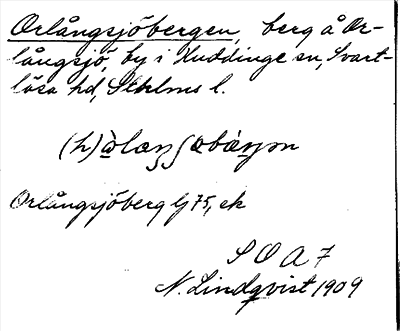 Orlångsjöbergen, berg å Or-
långsjö, by i Huddinge sn, Svart-
lösa hd, Sthlms l.
Orlångsjöberg Gj 75, ek
S O A 7
N. Lindqvist 1909